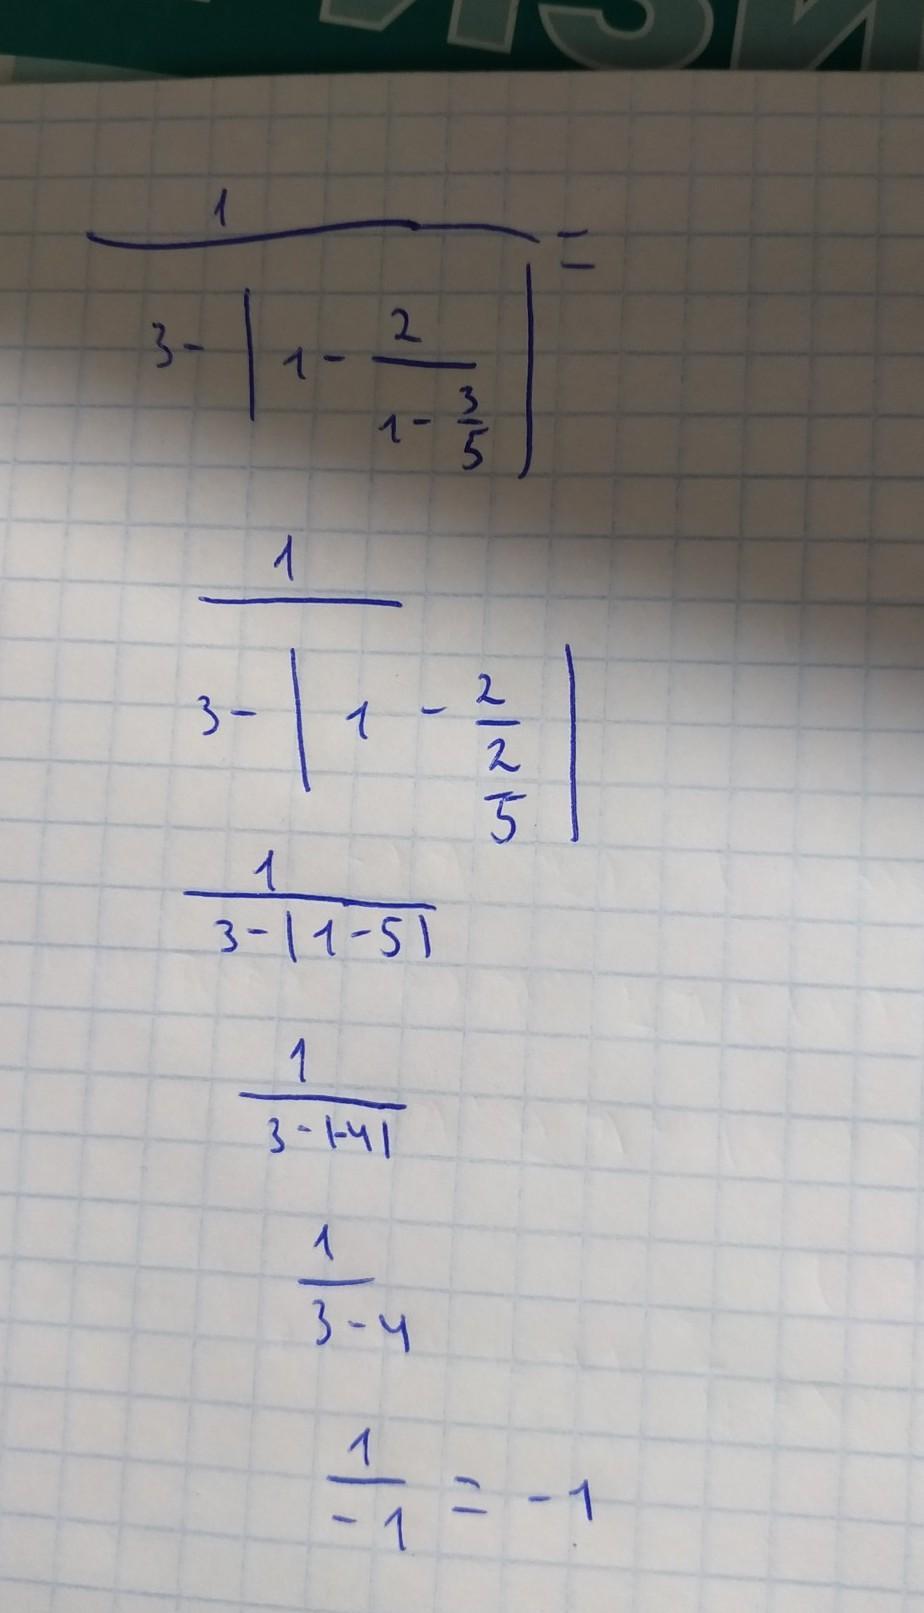 ИЗИ
1
=
3- | 1- 2
1- 3
5 |
1
3- | 1 - 2
2
5 |
1
3-|1-5|
1
3-|-4|
1
3-4
1
-1 = -1